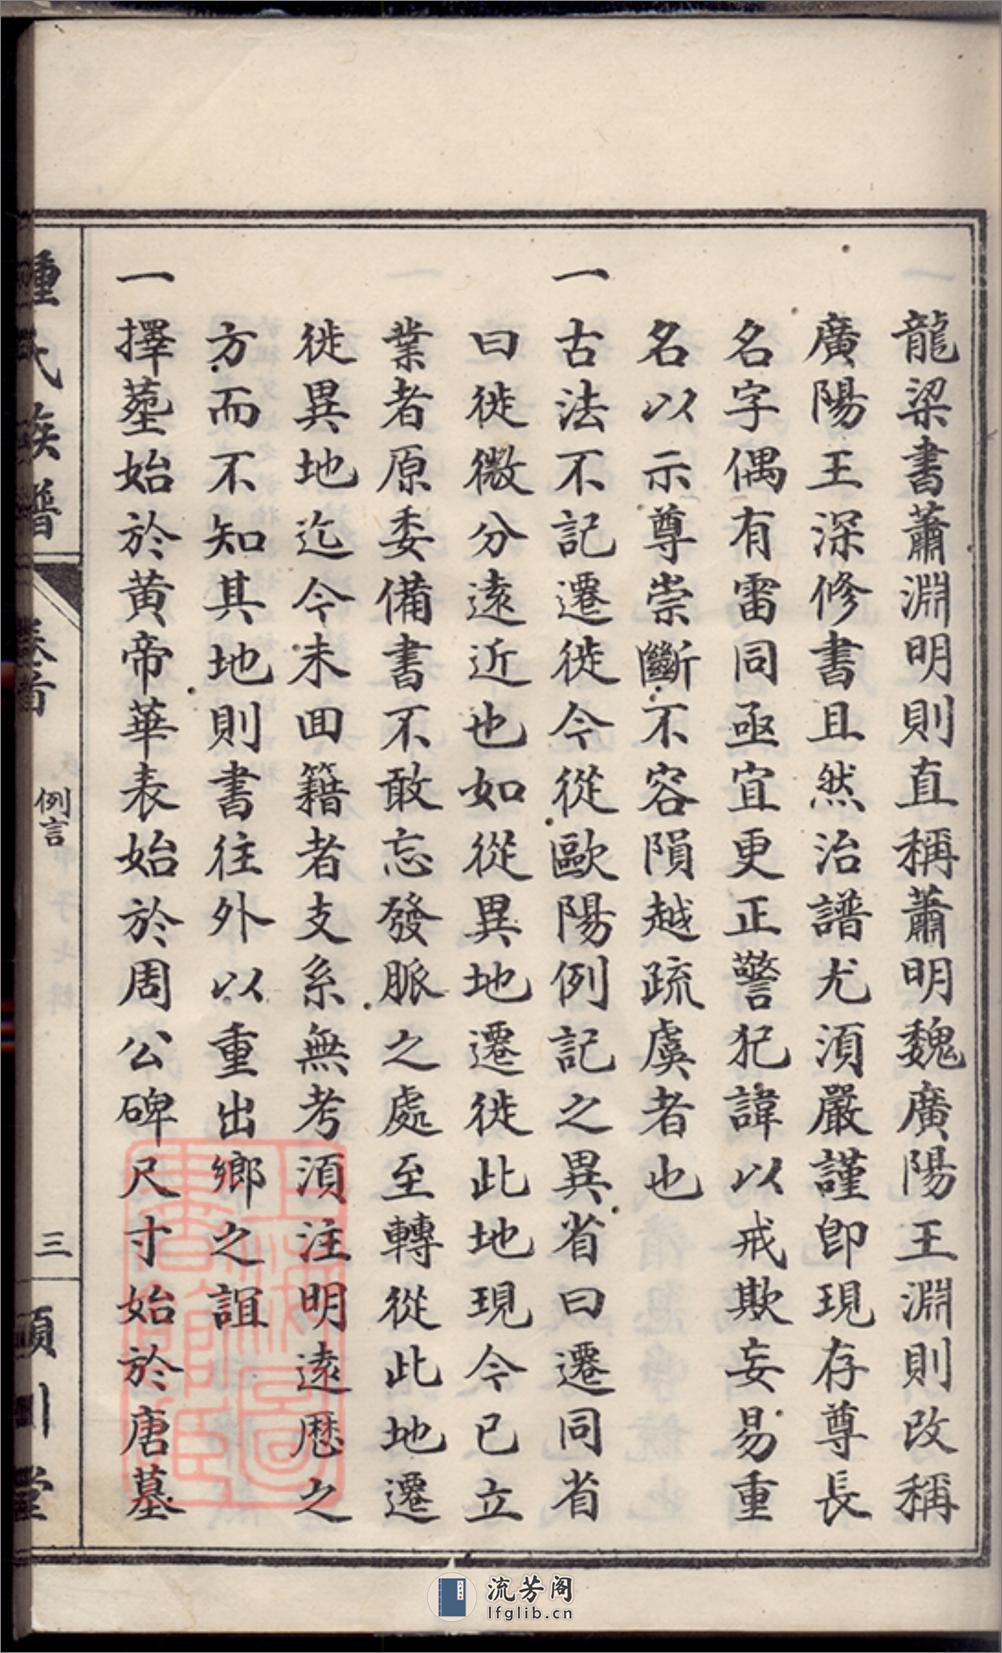 龍梁書蕭淵明則直稱蕭明魏廣陽王淵則改稱
廣陽王深修書且然治譜尤須嚴謹即現存尊長
名字偶有雷同亟宜更正警犯諱以戒欺妄易重
名以示尊崇斷不容隕越疏虞者也
一古法不記遷徙今從歐陽例記之異省曰遷同省
曰徙微分遠近也如從異地遷徙此地現今已立
業者原委備書不敢忘發脈之處至轉從此地遷
徙異地迄今未回籍者支系無考須注明遠歷之
方而不知其地則書往外以重出鄉之誼
一擇塟始於黃帝華表始於周公碑尺寸始於唐墓
鍾氏族譜
卷首
例言
三
穎川堂
上海圖書館藏
流芳阁
lfglib.cn